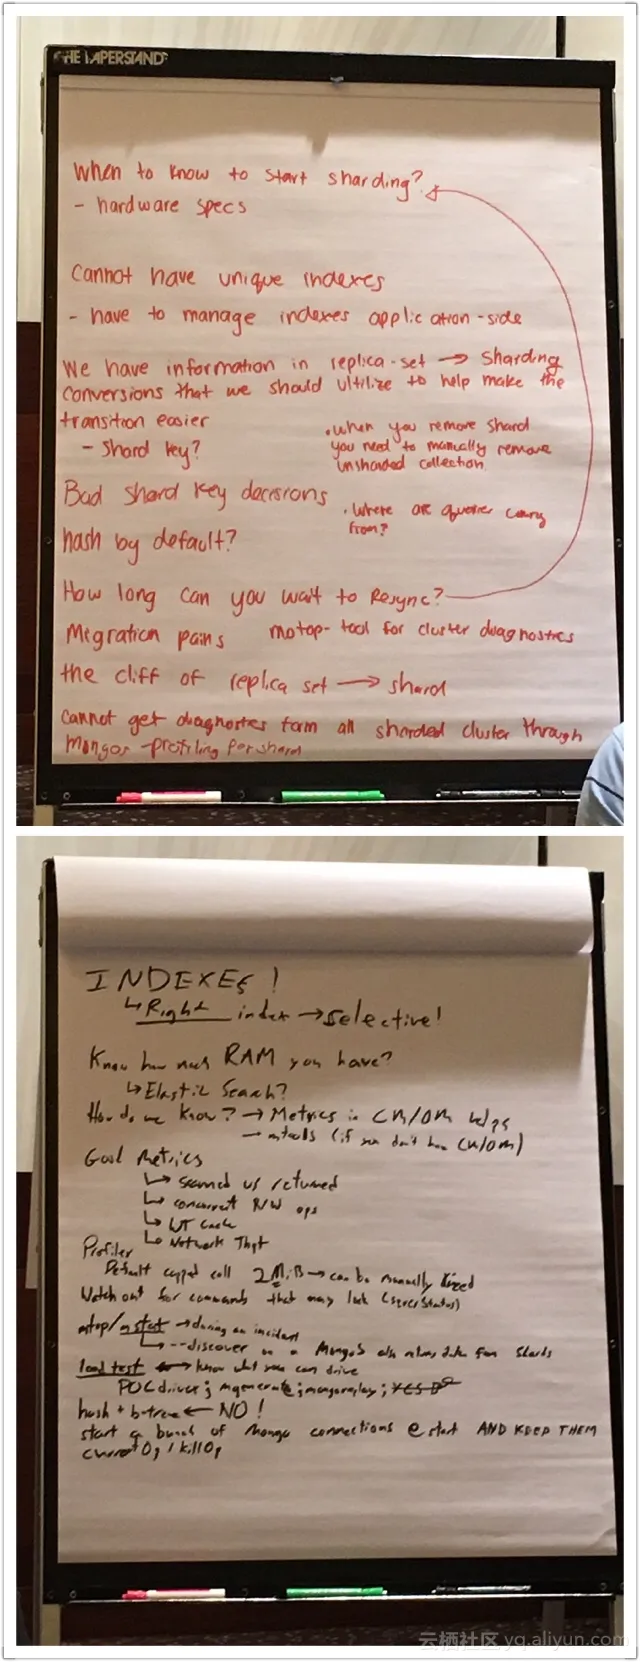 THE PAPERSTAND
When to know to start sharding?
- hardware specs
Cannot have unique indexes
- have to manage indexes application-side
We have information in replica-set → Sharding
conversions that we should ultilize to help make the
transition easier
- Shard key?
.when you remove shard
you need to manually remove
unsharded collection
Bad shard key decisions
.Where are queries coming
from?
hash by default?
How long can you wait to Resync?
Migration pains
motop- tool for cluster diagnostics
the cliff of replica set → shard
Cannot get diagnostics form all sharded cluster through
Mongos -profiling per shard
INDEXES!
↳ Right index → selective!
Know how much RAM you have?
↳ Elastic Search?
How do we know? → Metrics in CM/OM helps
→ mtools (if you don't have CM/OM)
Good Metrics
↳ scanned vs returned
↳ concurrent R/W ops
↳ WT Cache
↳ Network Thpt
Profiler
Default capped coll 2MiB → can be manually sized
Watch out for commands that may lock (serverStatus)
mtop/mstat → during an incident
↳ --discover on a MongoS also returns data from Shards
load test ↔ know what you can drive
POCdriver; mgenerate; mongoreplay;
hash + b-tree ← NO!
start a bunch of Mongo connections @ start AND KEEP THEM
currentOp / killOp
云栖社区 yq.aliyun.com